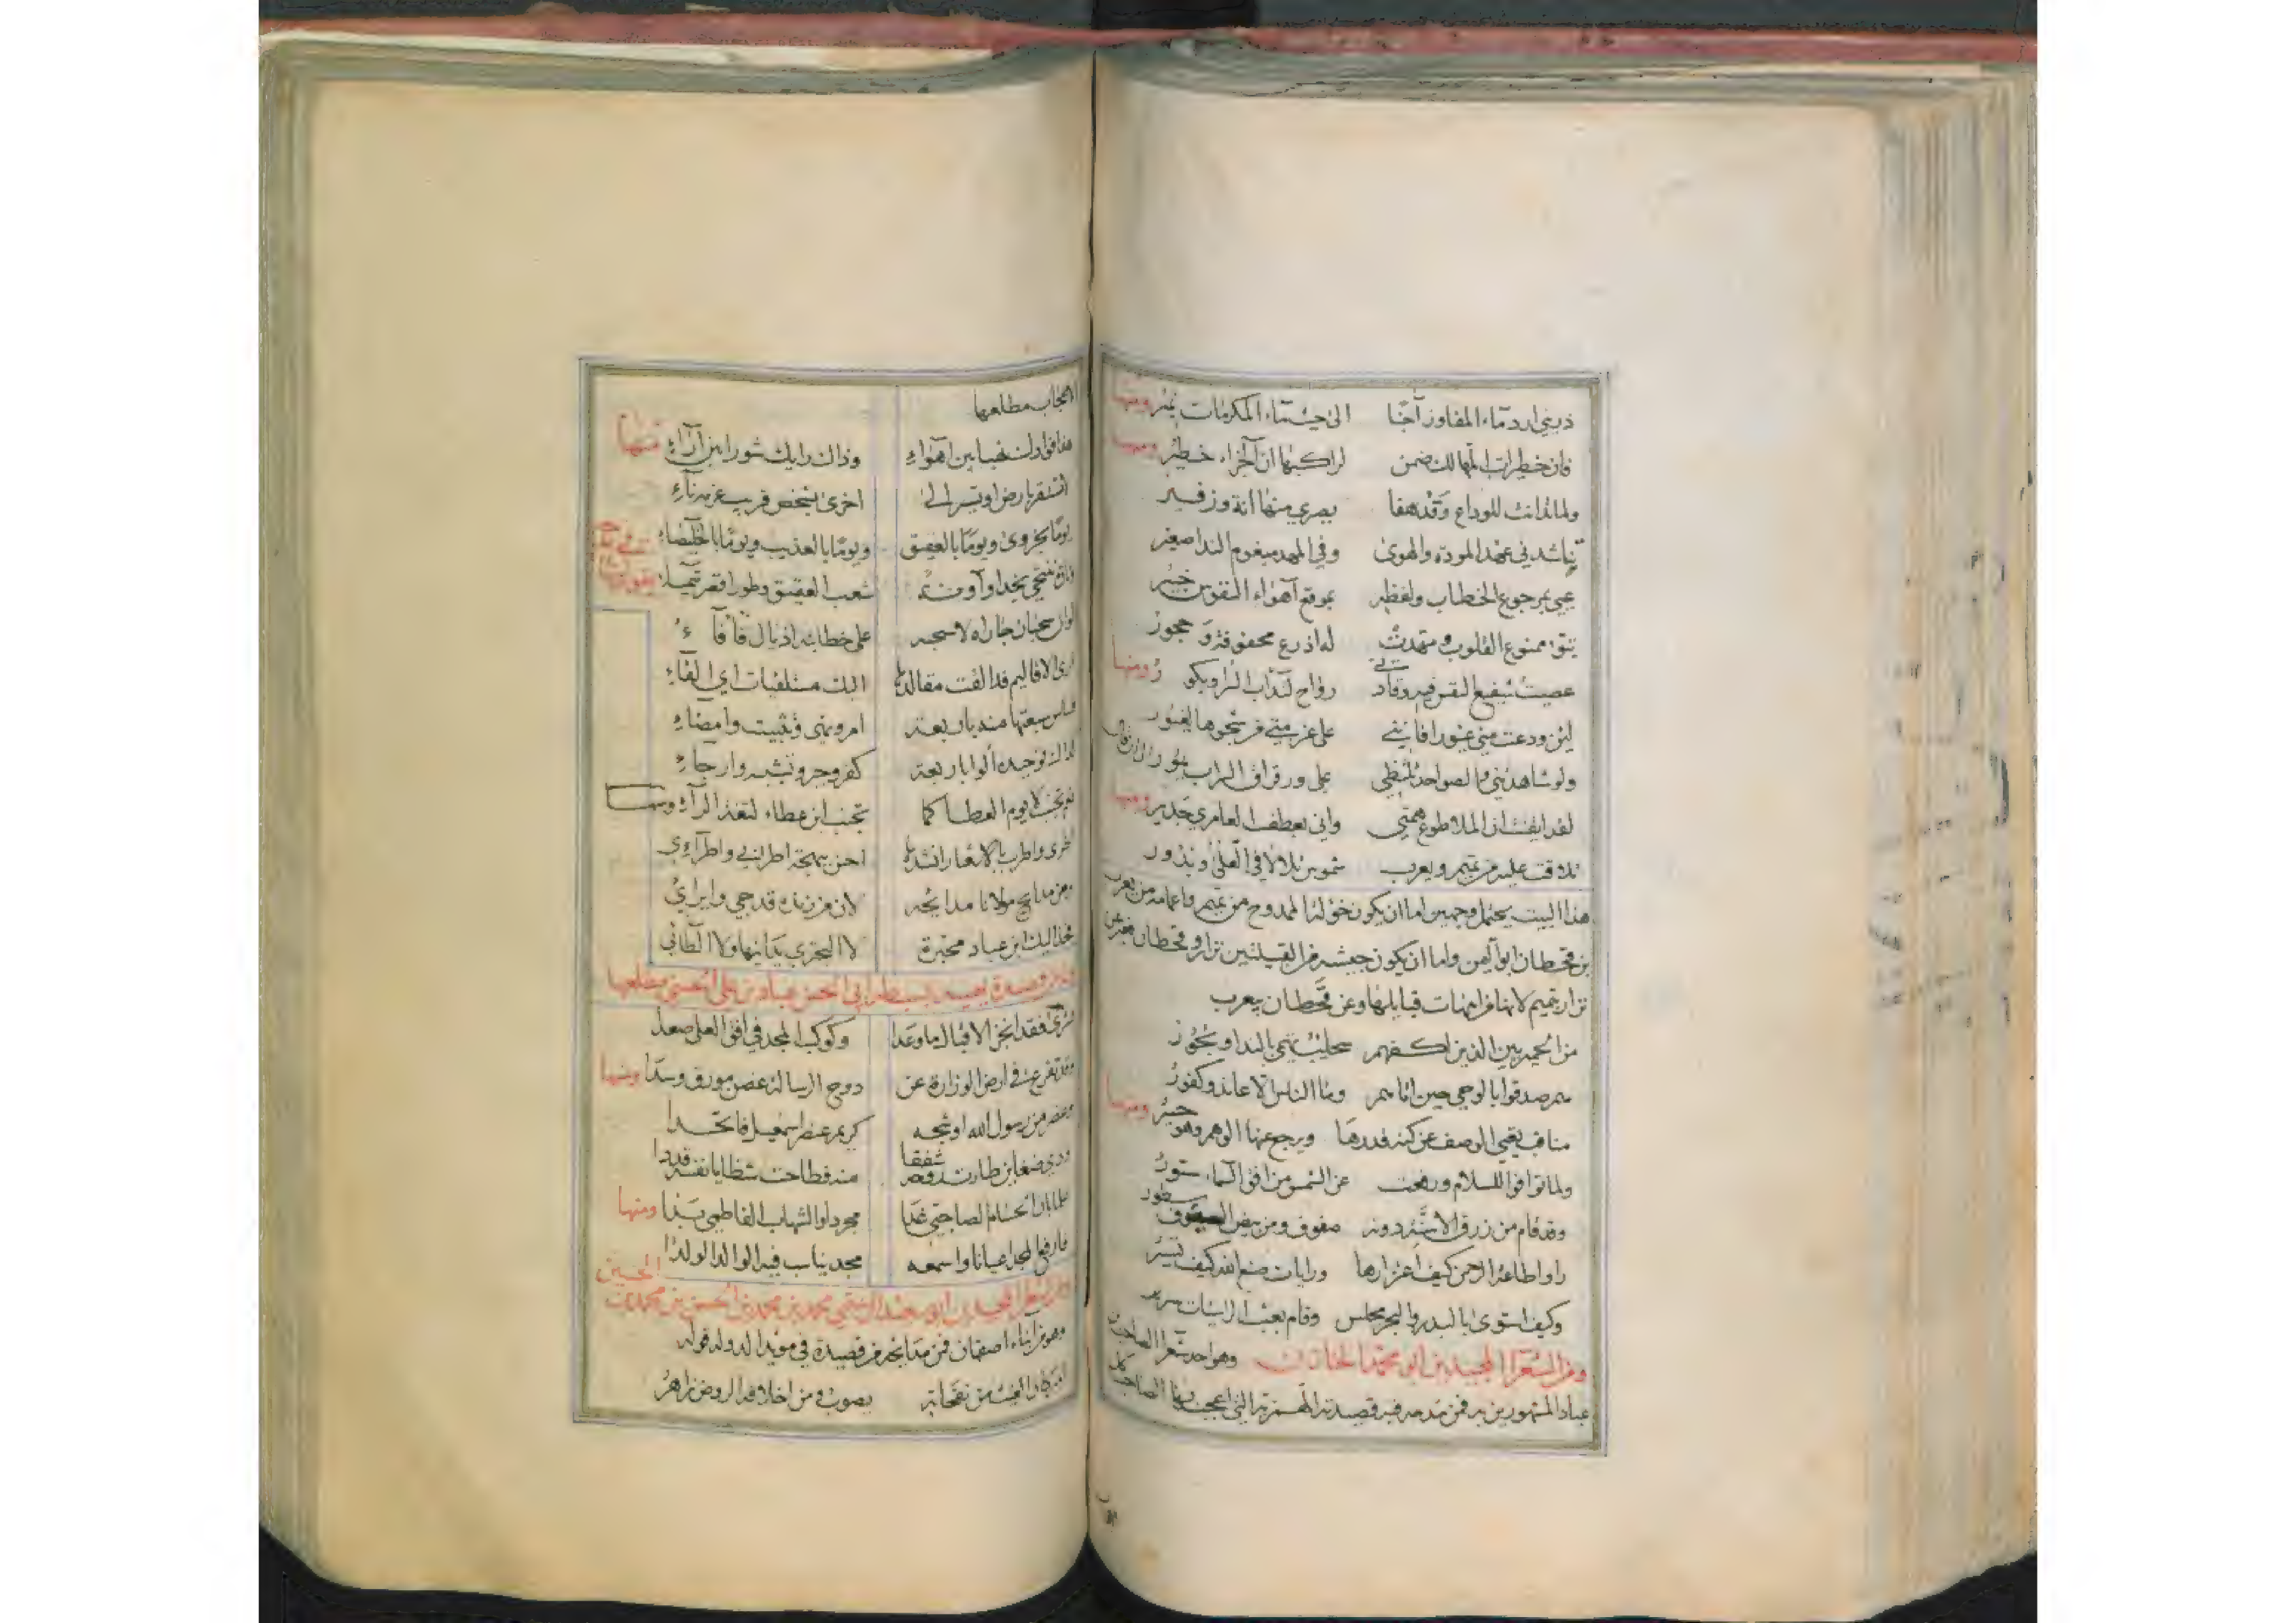 ذريني ارد ماء المفاوز آجنا الى حيث ماء المكرمات نمير ومنها
فان خطيرات المهالك ضمن لراكبها ان الجزاء خطير ومنها
ولما تدانت للوداع وقد هفا بصبري منها انة وزفير
تناشدني عهد المودة والهوى وفي المهد مبغوم الندا صغير
عيي بمرجوع الخطاب ولفظه بموقع اهواء النفوس خبير
تبوّء ممنوع القلوب ومهدت له اذرع محفوفة و حجور
عصيت شفيع النفس فيه وقادني رواح لتداب السرا وبكور ومنها
لئن ودعت مني غيورا فانني على عزمتي من شجوها لغيور
ولو شاهدتني والصواخد تلتظي علي ورقراق السراب يمور الى ان قال
لقد ايقنت ان المنا طوع همتي واني بعطف العامري جدير ومنها
تلاقت عليه من تميم ويعرب شموس تلالا في العلى وبدور
هذا البيت يحتمل وجهين اما ان يكون خؤلة الممدوح من تميم واعمامه من يعرب
بن قحطان ابو اليمن واما ان يكون جيشه من القبيلتين نزار وقحطان فعبر عن
نزار بتميم لانها من امهات قبايلها وعن قحطان بيعرب
من الحميريين الذين اكفهم سحائب تهمي بالندا وبحور
هم صدقوا بالوحي حين اتاهم وما الناس الا عاند وكفور
مناقب يعيي الوصف عن كنه قدرها ويرجع عنها الوهم وهو حسير ومنها
ولما توافوا للسلام ورفعت عن الشمس من افق السماء ستور
وقد قام من زرق الاسنة دونه صفوف ومن بيض السيوف سطور
راوا طاعة الرحمن كيف اعتزازها ورايات صنع الله كيف تسير
وكيف استوى بالبدر والبحر مجلس وقام بعبء الراسيات سرير
ومن الشعرا المجيدين ابو محمد الخازن وهو احد شعرا الصاحب بن
عباد المشهورين به فمن مدحه فيه قصيدته الهمزية التي اعجب بها الصاحب كل
الاعجاب مطلعها
هذا فؤادك نهبا بين اهواء وذاك رايك شورا بين آراء منها
لا تستقر بارض او تسير الى اخرى بشخص قريب عزمه ناء
يوما بحزوى ويوما بالعقيق ويوما بالعذيب ويوما بالخليصاء
وتارة تنتحي نجدا وآونة شعب العقيق وطورا قصر تيماء
سحبان جاراه لاسحبه على خطابته اذيال فافاء
ارى الاقاليم قد القت مقالدها اليك مستلقيات اي القاء
فساس سبعتها منه باربعة امر ونهي وتثبيت وامضاء
كذاك توحيده الوا باربعة كفر وجبر وتشبيه وارجاء
نعم تجنب لا يوم العطا كما تجنب ابن عطاء لثغة الراء ومنها
اطري واطرب بالاشعار انشدها احسن ببهجة اطرابي واطرائي
ومن مدايح مولانا مدايحه لان من زنده قدحي وايرائي
فخذ اليك ابن عباد محبرة لا البحتري يدانيها ولا الطائي
بسبطه ابي الحسن عباد بن علي الحسني مطلعها
بشرى فقد انجز الاقبال ما وعدا وكوكب المجد في افق العلى صعدا
وقد تفرع في ارض الوزارة عن دوح الرسالة غصن مورق رشدا ومنها
وعنصر من رسول الله اوشجه كريم عنصر اسمعيل فاتحدا
منه فطاحت شظايا نفسه قددا
محمد بن الحسن بن الحسين
وهو من ابناء اصفهان فمن مدايحه من قصيدة في مؤيد الدوله قوله
الغيث من نفحاته يصوب ومن اخلاقه الروض زاهر